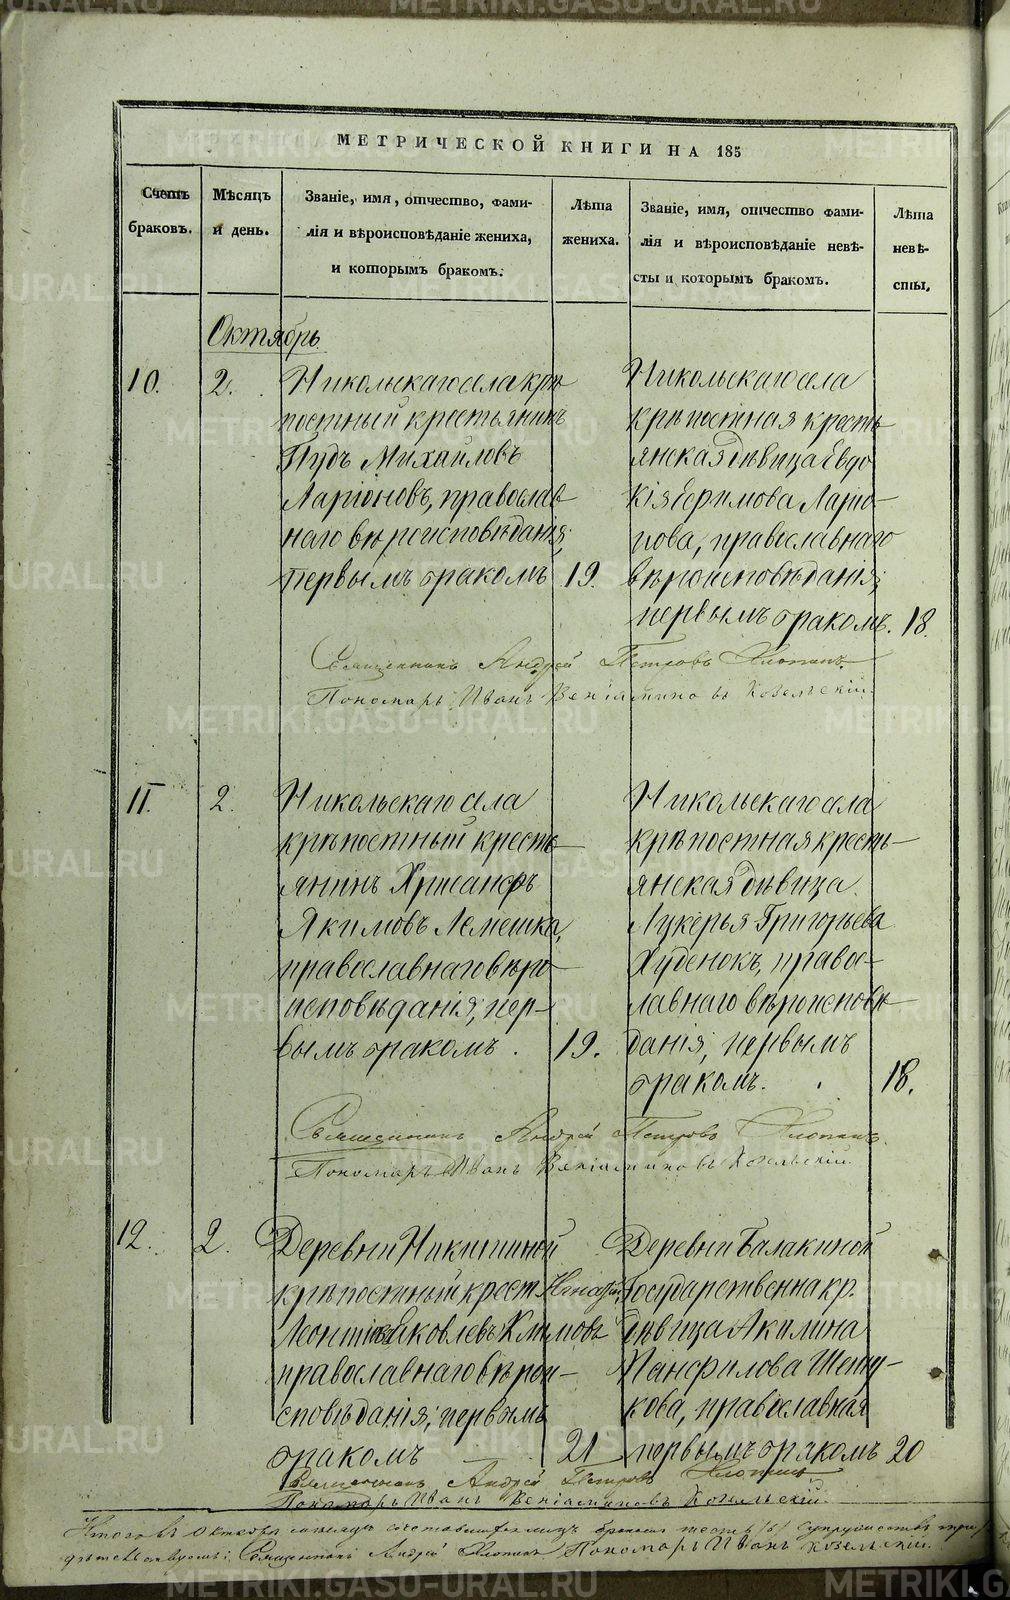 МЕТРИЧЕСКОЙ КНИГИ НА 185
Счетъ браковъ.
Мѣсяцъ и день.
Званіе, имя, отчество, фами-
лія и вѣроисповѣданіе жениха,
и которымъ бракомъ.
Лѣта жениха.
Званіе, имя, отчество фами-
лія и вѣроисповѣданіе невѣ-
сты и которымъ бракомъ.
Лѣта невѣ-
сты.
Октябрь
10. 2.
Никольскаго села крѣ
постный крестьянинъ
Пудъ Михайловъ
Ларіоновъ, православ
наго вѣроисповѣданія;
первымъ бракомъ 19.
Никольскаго села
крѣпостная кресть
янская дѣвица Евдо
кія Ефимова Ларіо-
нова, православнаго
вѣроисповѣданія;
первымъ бракомъ. 18.
Священникъ Андрей Петровъ Хлопинъ.
Пономарь Иванъ Веніаминовъ Козельскій.
11. 2.
Никольскаго села
крѣпостный кресть-
янинъ Хрисанфъ
Якимовъ Лемешка,
православнаго вѣро
исповѣданія; пер-
вымъ бракомъ. 19.
Никольскаго села
крѣпостная кресть-
янская дѣвица
Лукерья Григорьева
Худенокъ, право-
славнаго вѣроисповѣ-
данія; первымъ
бракомъ. 18.
Священникъ Андрей Петровъ Хлопинъ.
Пономарь Иванъ Веніаминовъ Козельскій.
12. 2.
Деревни Никитиной
крѣпостный крест
Леонтій Яковлевъ Климовъ
православнаго вѣрои-
сповѣданія; первымъ
бракомъ 21
Деревни Балакиной
Государственна кр.
дѣвица Акилина
Панфилова
кова, православная
первымъ бракомъ 20
Священникъ Андрей Петровъ Хлопинъ
Пономарь Иванъ Веніаминовъ Козельскій.
Итого въ Октябрѣ мѣсяцѣ браком шесть /6/ супружествъ
Священникъ Андрей Хлопинъ Пономарь Иванъ Козельскій.
METRIKI.GASO-URAL.RU